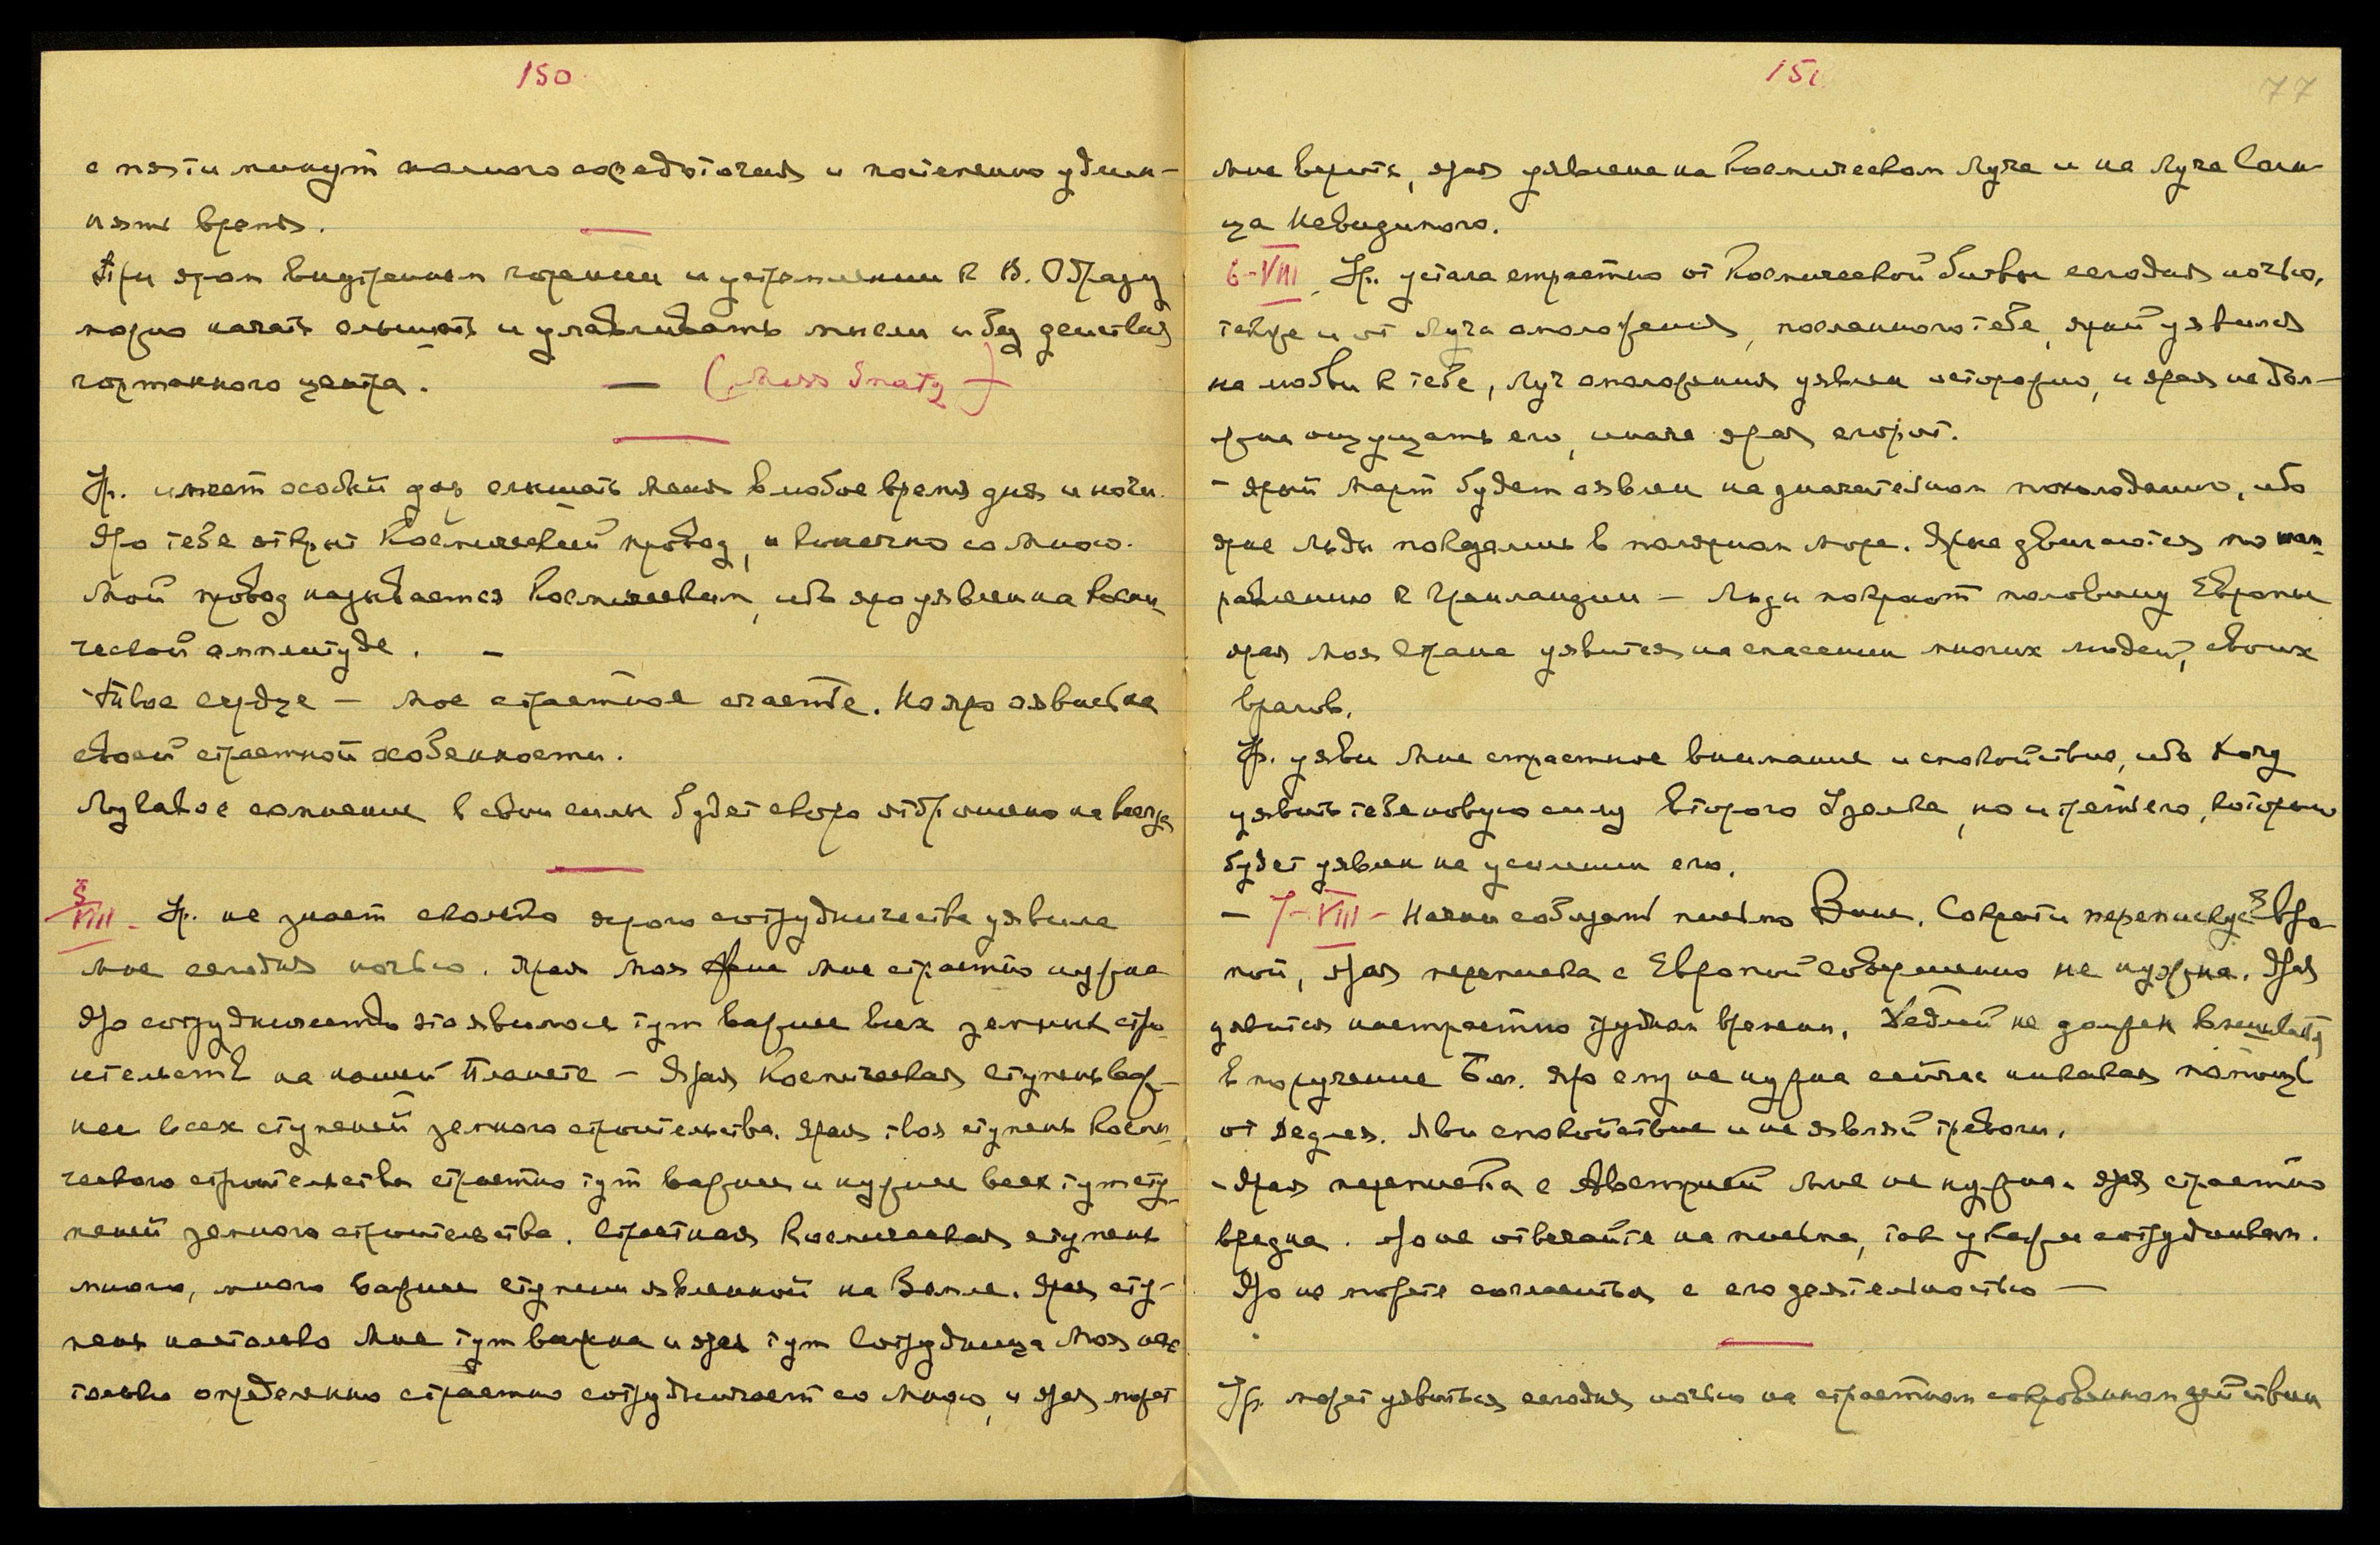 150
с пяти минут полного сосредоточия и постепенно удлин-
нять время.
При яром внутреннем горении и устремлении к В. Образу
можно начать слышать и улавливать мысли и без действия
гортанного центра. — (Miss
Ур. имеет особый дар слышать меня в любое время дня и ночи.
Яро тебе открыт Космический провод, и конечно со Мною.
Мой провод называется Космическим, ибо яро уявлен на Косми
ческой амплитуде. —
Твое сердце — Мое страстное счастье. Но яро явись на
своей страстной особенности.
Лукавое сомнение в свои силы будет скоро отброшено навсегда
5
VIII - Ур. не знает сколько ярого сотрудничества уявила
Мне сегодня ночью. Ярая Моя Мне страстно нужна
Яро сотрудничество это явилось тут важнее всех земных стро
ительств на нашей Планете — Ярая Космическая ступень важ-
нее всех ступеней земного строительства. Ярая твоя ступень Косми
ческого строительства страстно тут важнее и нужнее всех тут сту
пеней земного строительства. Страстная Космическая ступень
много, много важнее ступени явленной на Земле. Ярая сту-
пень настолько Мне тут важна и ярая тут Сотрудница Моя нас
только определенно страстно сотрудничает со Мною, и ярая может
151
77
Мне верить, ярая уявлена на Космическом Луче и на Луче Солн-
ца Невидимого.
6-VIII. Ур. устала страстно от Космической битвы сегодня ночью,
также и от Луча омоложения, посланного тебе, ярый уявился
на любви к тебе, Луч омоложения уявлен осторожно, и ярая не дол-
жна ощущать его, иначе ярая сгорит.
- Ярый Март будет явлен на значительном похолодании, ибо
ярые льды покажались в полярном море. Ярые двигаются по нап
равлению к Гренландии — Льды покроют половину Европы
ярая Моя Страна уявится на спасении многих людей, своих
врагов.
Ур. уяви Мне страстное внимание и спокойствие, ибо хочу
уявить тебе новую силу второго Узелка, но и третьего, который
будет уявлен на усилении его.
- 7-VIII - Начни сообщать письмо Вине. Сократи переписку с Евро
пой, ярая переписка с Европой совершенно не нужна. Ярая
уявится на страстно трудном времени. Хедлей не должен вмешивать
в поручение Бол. Яро ему не нужна сейчас никакая помощь
от Хедлея. Яви спокойствие и не являй тревоги.
- Ярая переписка с Австрией Мне не нужна. Ярая страстно
вредна. Яро не отвечайте на письма, так укажи сотрудникам.
Яро не можете согласиться с его деятельностью —
Ур. может уявиться сегодня ночью на страстном сокровенном действии